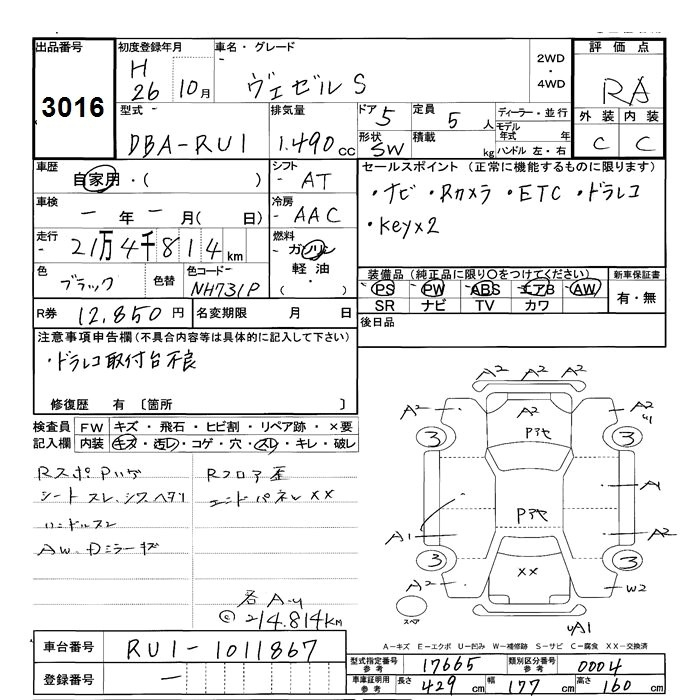 出品番号 初度登録年月 車名・グレード 評価点
3016 H 26 10月 ヴェゼル S 2WD・4WD RA
型式 排気量 ドア 5 定員 5 人 ディーラー・並行 外装 内装
DBA-RU1 1.490cc 形状 SW 積載 kg モデル年式 年 C C
ハンドル 左・右
車歴 自家用・( ) シフト AT セールスポイント (正常に機能するものに限ります)
・ナビ ・Rカメラ ・ETC ・ドラレコ
車検 ー 年 ー 月( 日) 冷房 AAC ・Keyx2
走行 21万4千814km 燃料 ガソリン 軽油 ( ・ )
装備品 (純正品に限り○をつけてください) 新車保証書
色 ブラック 色替 色コード NH731P PS PW ABS エアB AW 有・無
SR ナビ TV カワ
R券 12,850円 名変期限 月 日 後日品
注意事項申告欄(不具合内容等は具体的に記入して下さい)
・ドラレコ取付台不良
修復歴 有 〔箇所 〕
検査員記入欄 FW キズ・飛石・ヒビ割・リペア跡・×要
内装 キズ・汚レ・コゲ・穴・スレ・キレ・破レ
RスポPハゲ Rフロア歪
シートスレ、シワ、ヘタリ エンドパネルXX
ハンドルスレ
AW、Dミラーキズ
各A-U
© 214.814KM
A2 A2 A2
A2 A2 A2 U1
3 Pアヤ 3
A1
A1 Pアヤ A2
3 3
A2 XX W2
スペア UA1
A-キズ E-エクボ U-凹み W-補修跡 S-サビ C-腐食 XX-交換済
車台番号 RU1-1011867
型式指定番号 参考 17665 類別区分番号 参考 0004
登録番号 ー 車庫証明用 参考 長さ 429cm 幅 177cm 高さ 160cm